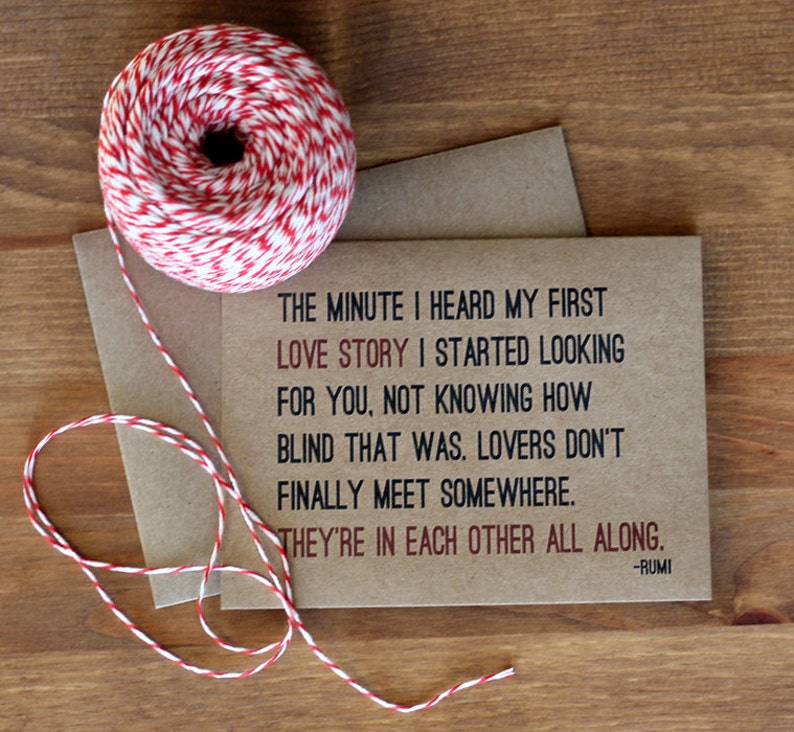 THE MINUTE I HEARD MY FIRST
LOVE STORY I STARTED LOOKING
FOR YOU, NOT KNOWING HOW
BLIND THAT WAS. LOVERS DON'T
FINALLY MEET SOMEWHERE.
THEY'RE IN EACH OTHER ALL ALONG.
-RUMI